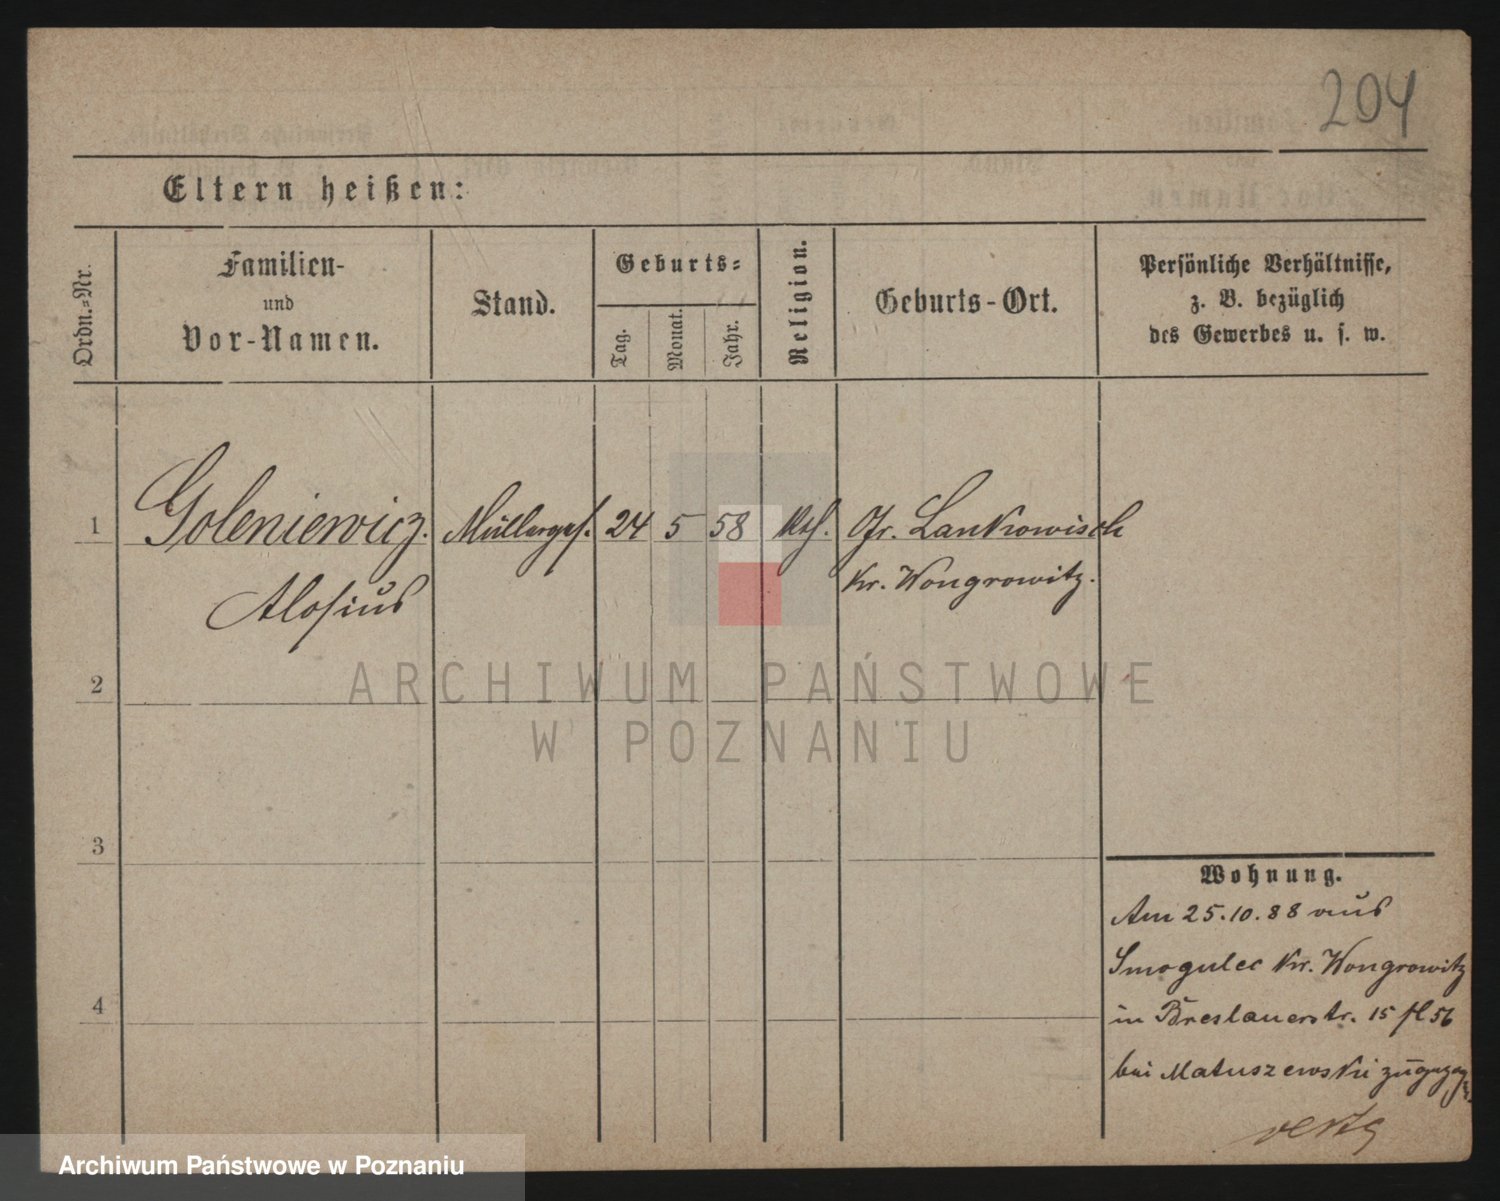 204
Eltern heißen:
Ordn.=Nr.
Familien-
und
Vor-Namen.
Stand.
Geburts=
Tag.
Monat.
Jahr.
Religion.
Geburts-Ort.
Persönliche Verhältnisse,
z. B. bezüglich
des Gewerbes u. s. w.
1 Goleniewicz. Müllerges. 24 5 58 kth. Gr. Lankowisch
Alosius Kr. Wongrowitz.
2
3
4
Wohnung.
Am 25.10.88 aus
Smogulec Kr. Wongrowitz
in Breslauerstr. 15 fl 56
bei Matuszewski
ARCHIWUM PAŃSTWOWE
W POZNANIU
Archiwum Państwowe w Poznaniu